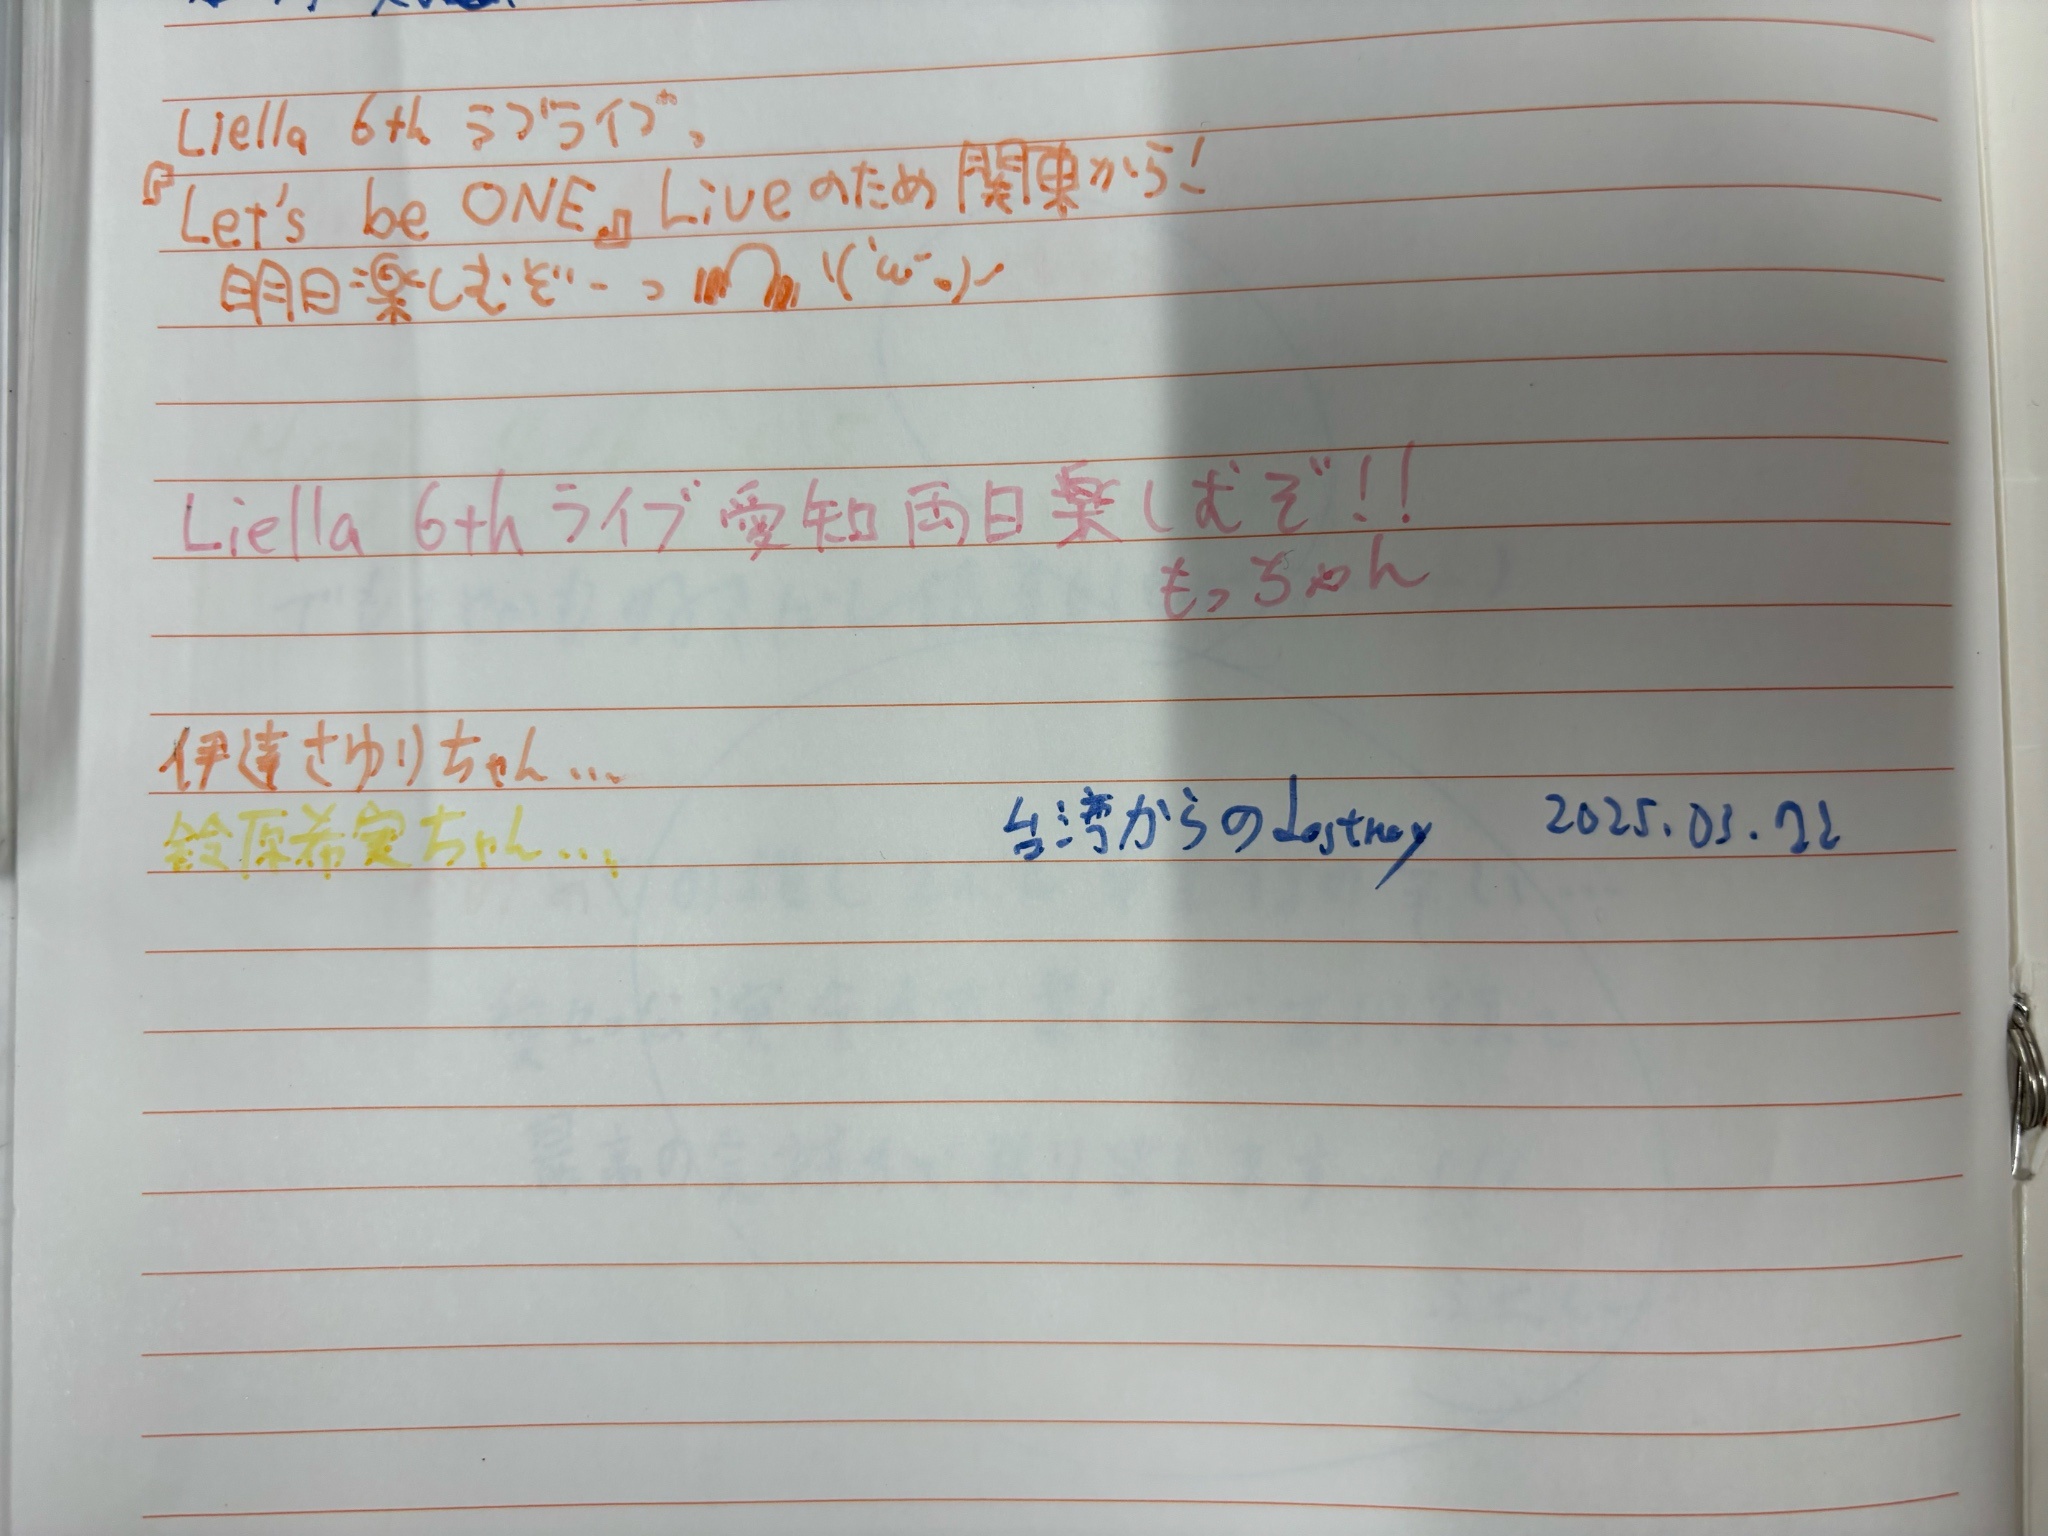 Liella 6th ラブライブ、
『Let's be ONE』Liveのため関東から！
明日楽しむぞーっ ヽ(´ω｀)ノ
Liella 6th ライブ 愛知両日楽しむぞ!!
もっちゃん
伊達さゆりちゃん...
鈴原希実ちゃん...
台湾からのLostmay 2025.03.22